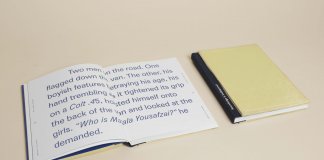 Two men on the road. One
flagged down the van. The other, his
boyish features betraying his age, his
hand trembling as it tightened its grip
on a Colt .45, hoisted himself onto
the back of the van and looked at the
girls. "Who is Malala Yousafzai?" he
demanded.